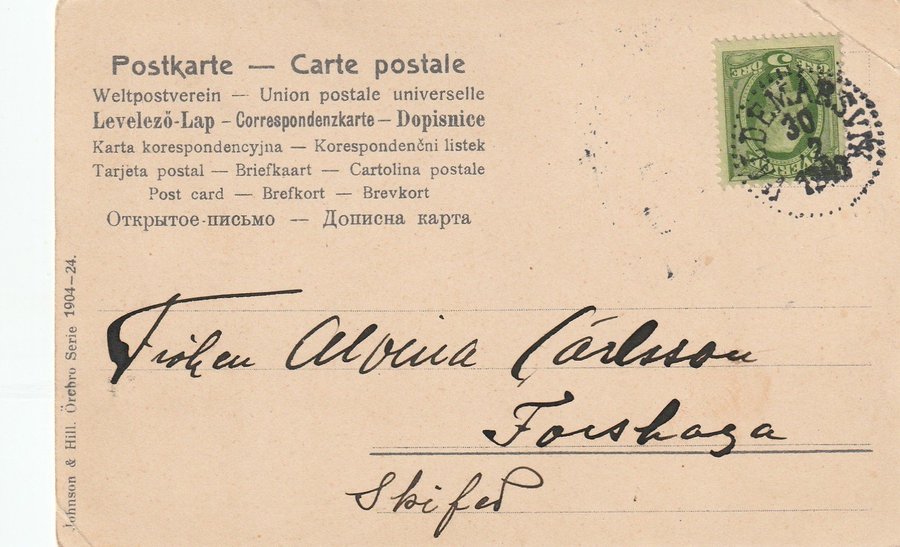 Postkarte — Carte postale
Weltpostverein — Union postale universelle
Levelező-Lap – Correspondenzkarte – Dopisnice
Karta korespondencyjna — Korespondenční listek
Tarjeta postal — Briefkaart — Cartolina postale
Post card — Brefkort — Brevkort
Открытое-письмо — Дописна карта
5
ÖRE
30
Fröken Alvina Carlsson
Forshaga
Johnson & Hill. Örebro Serie 1904—24.